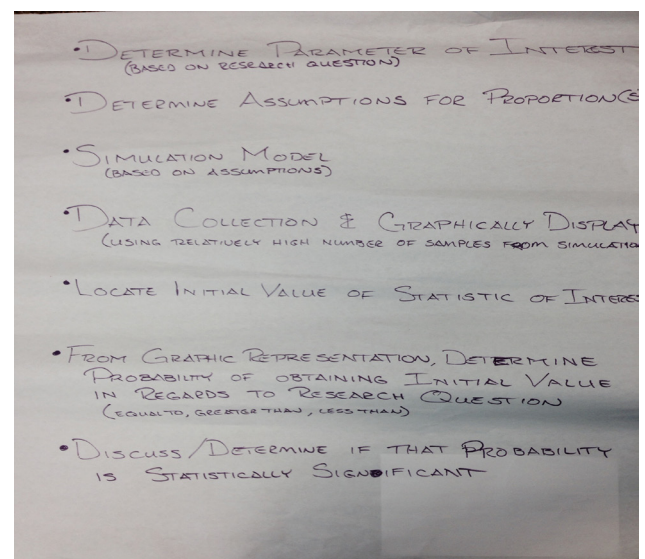 • DETERMINE PARAMETER OF INTEREST
(BASED ON RESEARCH QUESTION)
• DETERMINE ASSUMPTIONS FOR PROPORTION(S
• SIMULATION MODEL
(BASED ON ASSUMPTIONS)
• DATA COLLECTION & GRAPHICALLY DISPLAY
(USING RELATIVELY HIGH NUMBER OF SAMPLES FROM SIMULATIO
• LOCATE INITIAL VALUE OF STATISTIC OF INTERES
• FROM GRAPHIC REPRESENTATION, DETERMINE
PROBABILITY OF OBTAINING INITIAL VALUE
IN REGARDS TO RESEARCH QUESTION
(EQUAL TO, GREATER THAN, LESS THAN)
• DISCUSS/DETERMINE IF THAT PROBABILITY
IS STATISTICALLY SIGNIFICANT